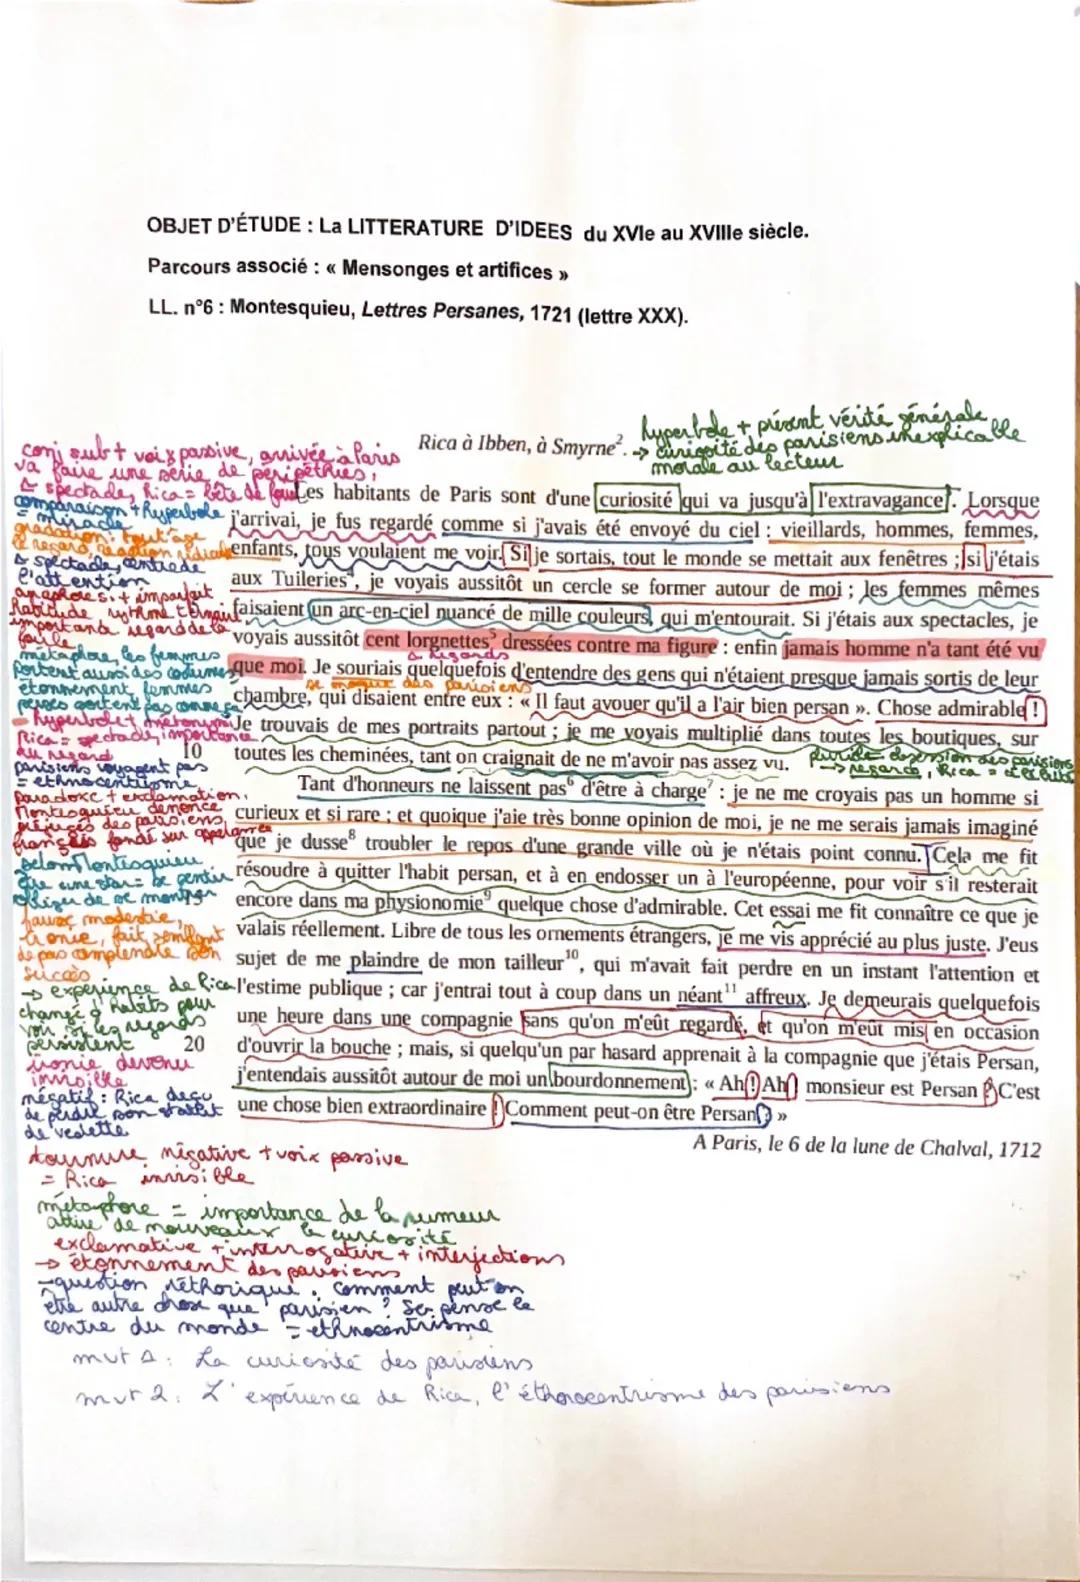 OBJET D'ÉTUDE : La LITTERATURE D'IDEES du XVIe au XVIIIe siècle.
Parcours associé : « Mensonges et artifices »
LL. n°6 : Montesquieu, Lettres Persanes, 1721 (lettre XXX).
hyperbole + présent vérité générale
→ curiosité des parisiens inexplicable
morale au lecteur
Rica à Ibben, à Smyrne².
conj sub + voix passive, arrivée à Paris
va faire une série de péripéties,
spectacle, Rica = bête de
comparaison + hyperbole
= miracle
gradation : tout âge
regard, réaction ridicule
spectacle, centre de
l'attention
anaphore s. + imparfait
habitude rythme ternaire
importante regard de la
foule
métaphore, les femmes
portent aussi des costumes
étonnement, femmes
perses portent pas comme ça
- hyperbole + métonymie
Rica = spectacle, importance
du regard
parisiens voyagent pas
= ethnocentrisme
paradoxe + exclamation,
Montesquieu dénonce
préjugés des parisiens,
français fondé sur apparence
selon Montesquieu
être une star = se sentir
obligé de se montrer
fausse modestie,
ironie, fait semblant
de pas comprendre son
succès
→ expérience de Rica
change d'habits pour
voir si les regards
persistent
ironie devenu
invisible
négatif : Rica déçu
de perdre son statut
de vedette
Les habitants de Paris sont d'une curiosité qui va jusqu'à l'extravagance. Lorsque
j'arrivai, je fus regardé comme si j'avais été envoyé du ciel : vieillards, hommes, femmes,
enfants, tous voulaient me voir. Si je sortais, tout le monde se mettait aux fenêtres ; si j'étais
aux Tuileries⁴, je voyais aussitôt un cercle se former autour de moi ; les femmes mêmes
faisaient un arc-en-ciel nuancé de mille couleurs, qui m'entourait. Si j'étais aux spectacles, je
voyais aussitôt cent lorgnettes⁵ dressées contre ma figure : enfin jamais homme n'a tant été vu
regards
que moi. Je souriais quelquefois d'entendre des gens qui n'étaient presque jamais sortis de leur
se moque des parisiens
chambre, qui disaient entre eux : « Il faut avouer qu'il a l'air bien persan ». Chose admirable !
Je trouvais de mes portraits partout ; je me voyais multiplié dans toutes les boutiques, sur
10 toutes les cheminées, tant on craignait de ne m'avoir pas assez vu.
des parisiens
→ regards, Rica =
Tant d'honneurs ne laissent pas⁶ d'être à charge⁷ : je ne me croyais pas un homme si
curieux et si rare ; et quoique j'aie très bonne opinion de moi, je ne me serais jamais imaginé
que je dusse⁸ troubler le repos d'une grande ville où je n'étais point connu. Cela me fit
résoudre à quitter l'habit persan, et à en endosser un à l'européenne, pour voir s'il resterait
15 encore dans ma physionomie⁹ quelque chose d'admirable. Cet essai me fit connaître ce que je
valais réellement. Libre de tous les ornements étrangers, je me vis apprécié au plus juste. J'eus
sujet de me plaindre de mon tailleur¹⁰, qui m'avait fait perdre en un instant l'attention et
l'estime publique ; car j'entrai tout à coup dans un néant¹¹ affreux. Je demeurais quelquefois
une heure dans une compagnie sans qu'on m'eût regardé, et qu'on m'eût mis en occasion
20 d'ouvrir la bouche ; mais, si quelqu'un par hasard apprenait à la compagnie que j'étais Persan,
j'entendais aussitôt autour de moi un bourdonnement : « Ah ! Ah ! monsieur est Persan ? C'est
une chose bien extraordinaire ! Comment peut-on être Persan ? »
A Paris, le 6 de la lune de Chalval, 1712
tournure négative + voix passive
= Rica invisible
métaphore = importance de la rumeur
attire de nouveaux la curiosité
exclamative + interrogative + interjections
→ étonnement des parisiens
→ question réthorique, comment peut on
être autre chose que parisien ? Se pense le
centre du monde = ethnocentrisme
mvt 1 : La curiosité des parisiens
mvt 2 : L'expérience de Rica, l'éthnocentrisme des parisiens